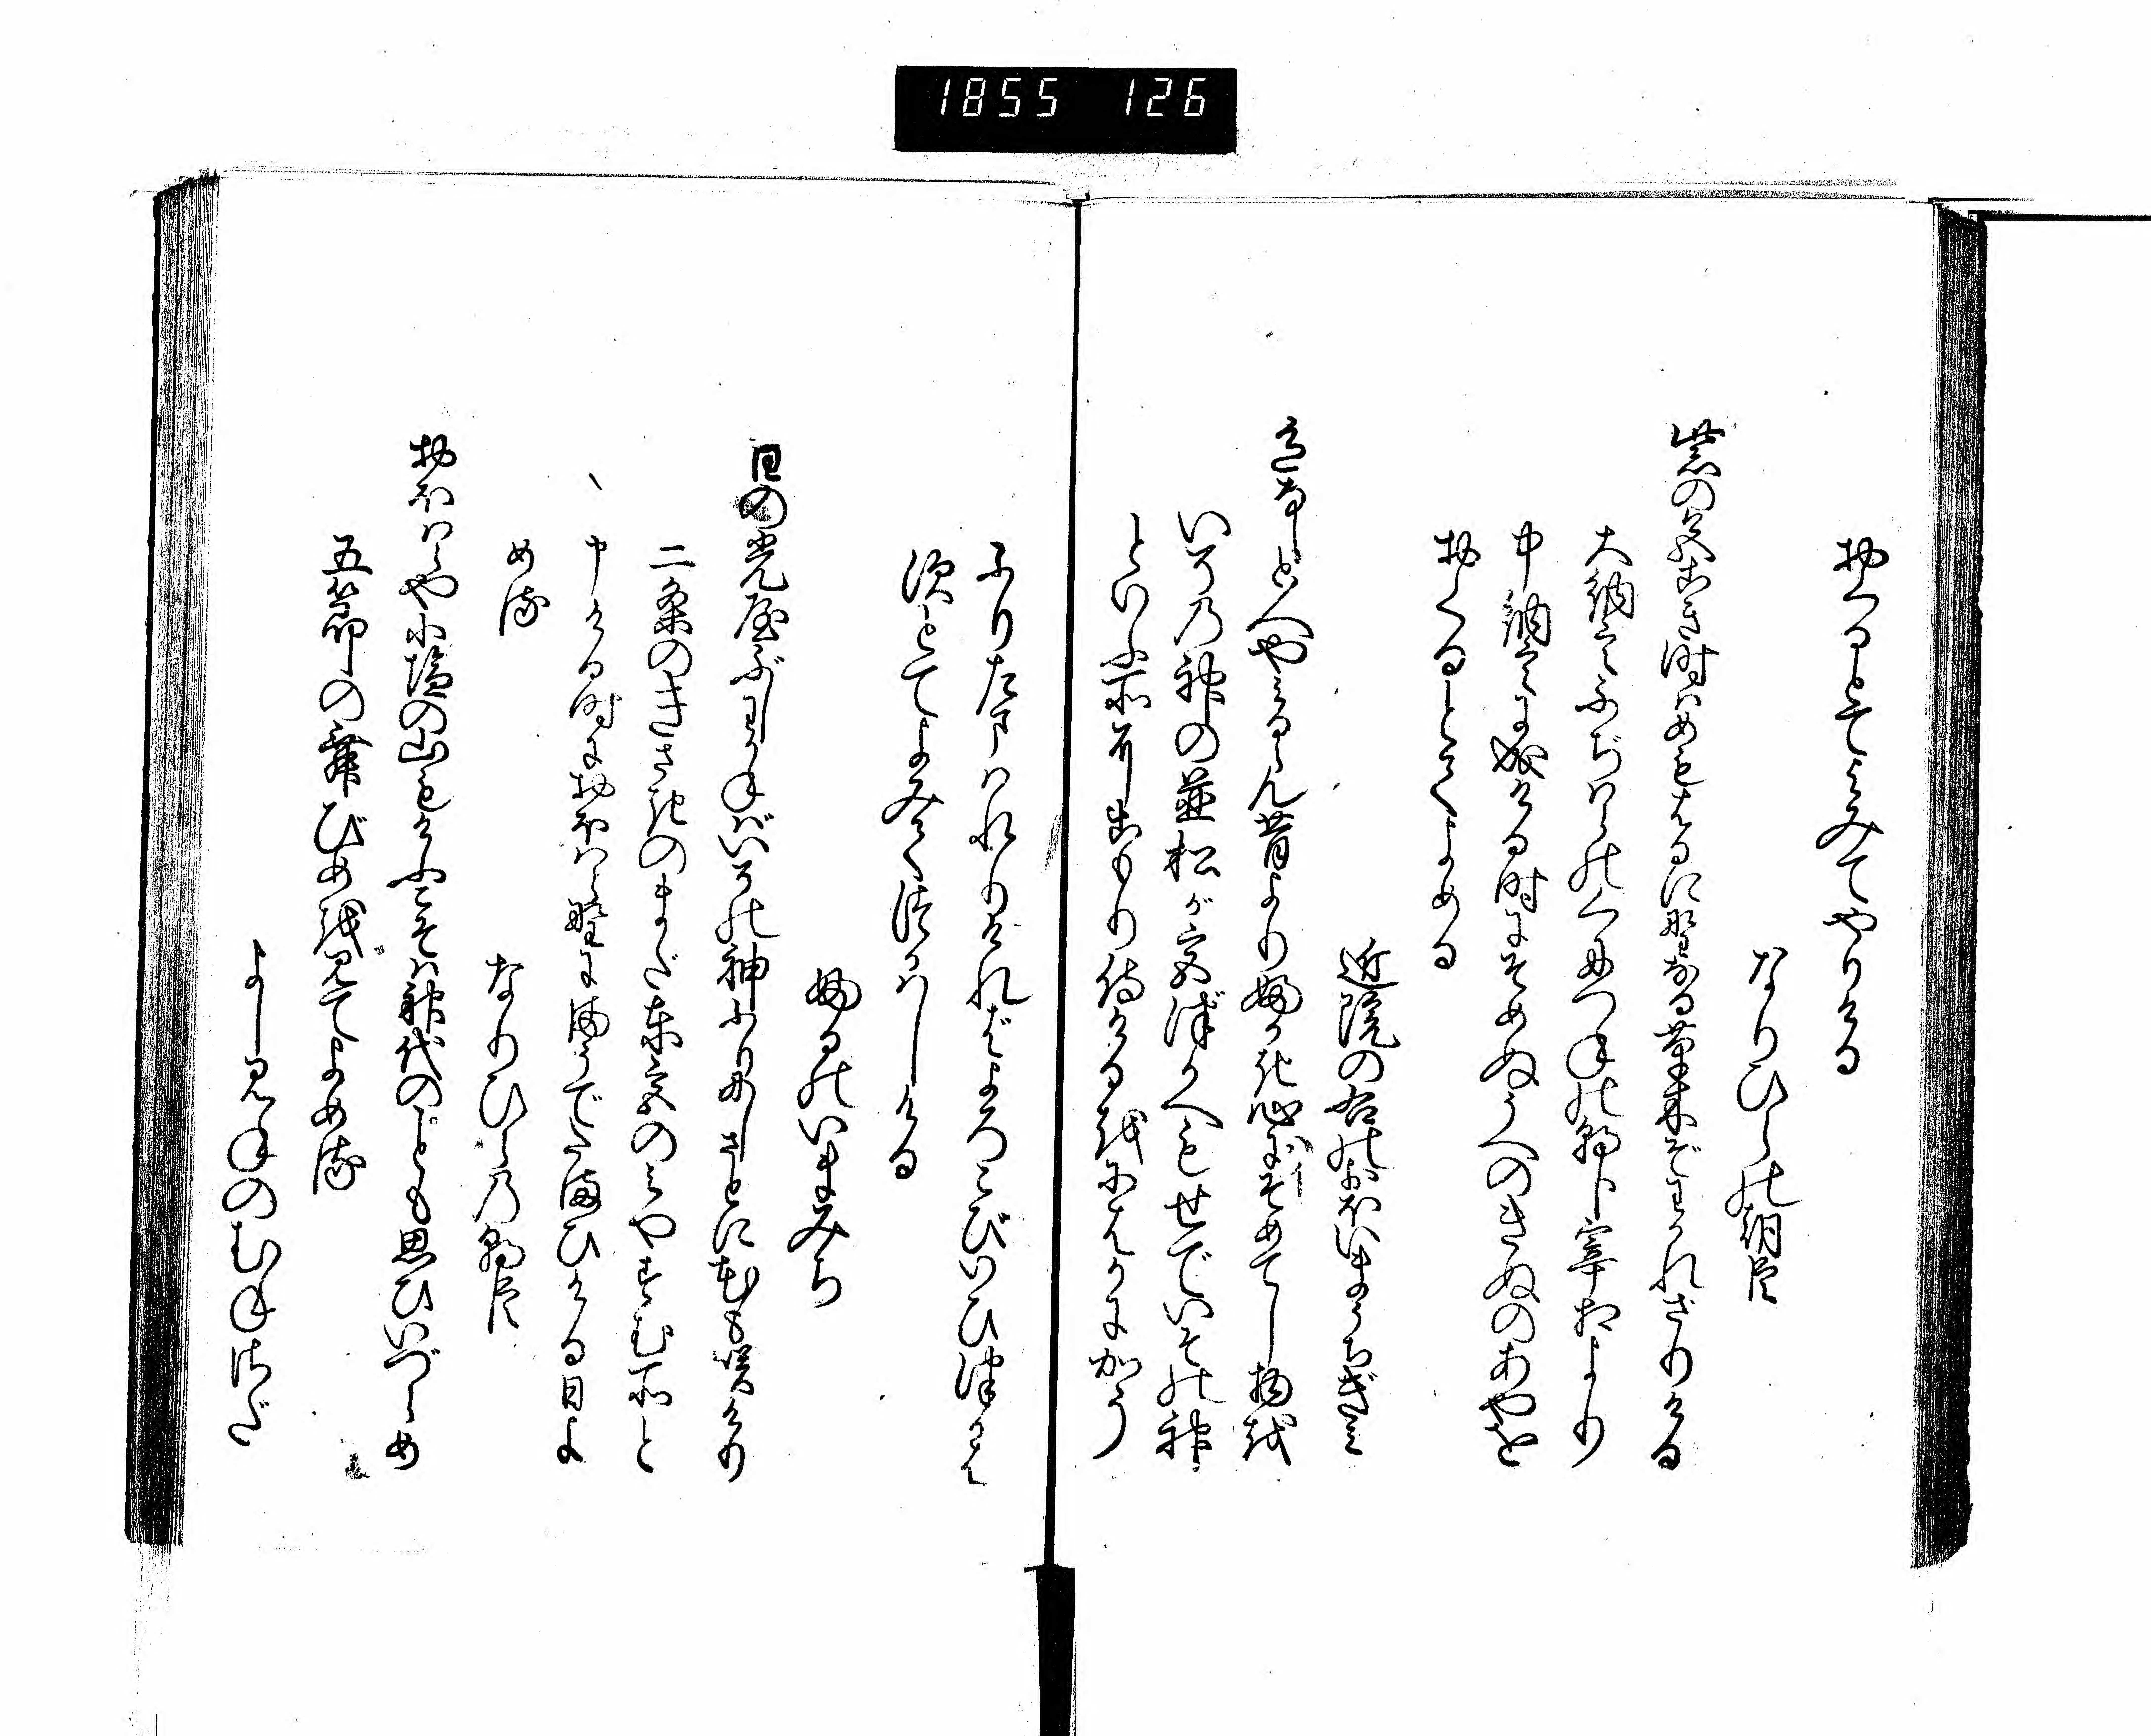 1855 126
おくるとてよみてやりける
なりひらの朝臣
紫の色こき時はめもはるに野なる草木ぞわかれざりける
大納言ふぢはらのくにつねの朝臣宰相より
中納言に成ける時にそめぬうへのきぬのあやを
おくるとてよめる
近院の右のおほいまうちぎみ
色なしと人やみるらん昔よりふかき心にそめてし物を
いその神の並松が宮づかへもせでいその神
といふ所にこもり侍けるをにはかに加う
ふりたまはれりければよろこびいひつかは
すとてよみてつかはしける
ふるのいまみち
日の光屋ぶしわかねばいその神ふりにしさとに花も咲けり
二条のきさきのまだ東宮のみやすむ所と
申ける時におほはら野にまうでたまひける日よ
める
なりひらの朝臣
おほはらや小塩の山もけふこそは神代のことも思ひいづらめ
五節の舞びめを見てよめる
よしみねのむねさだ